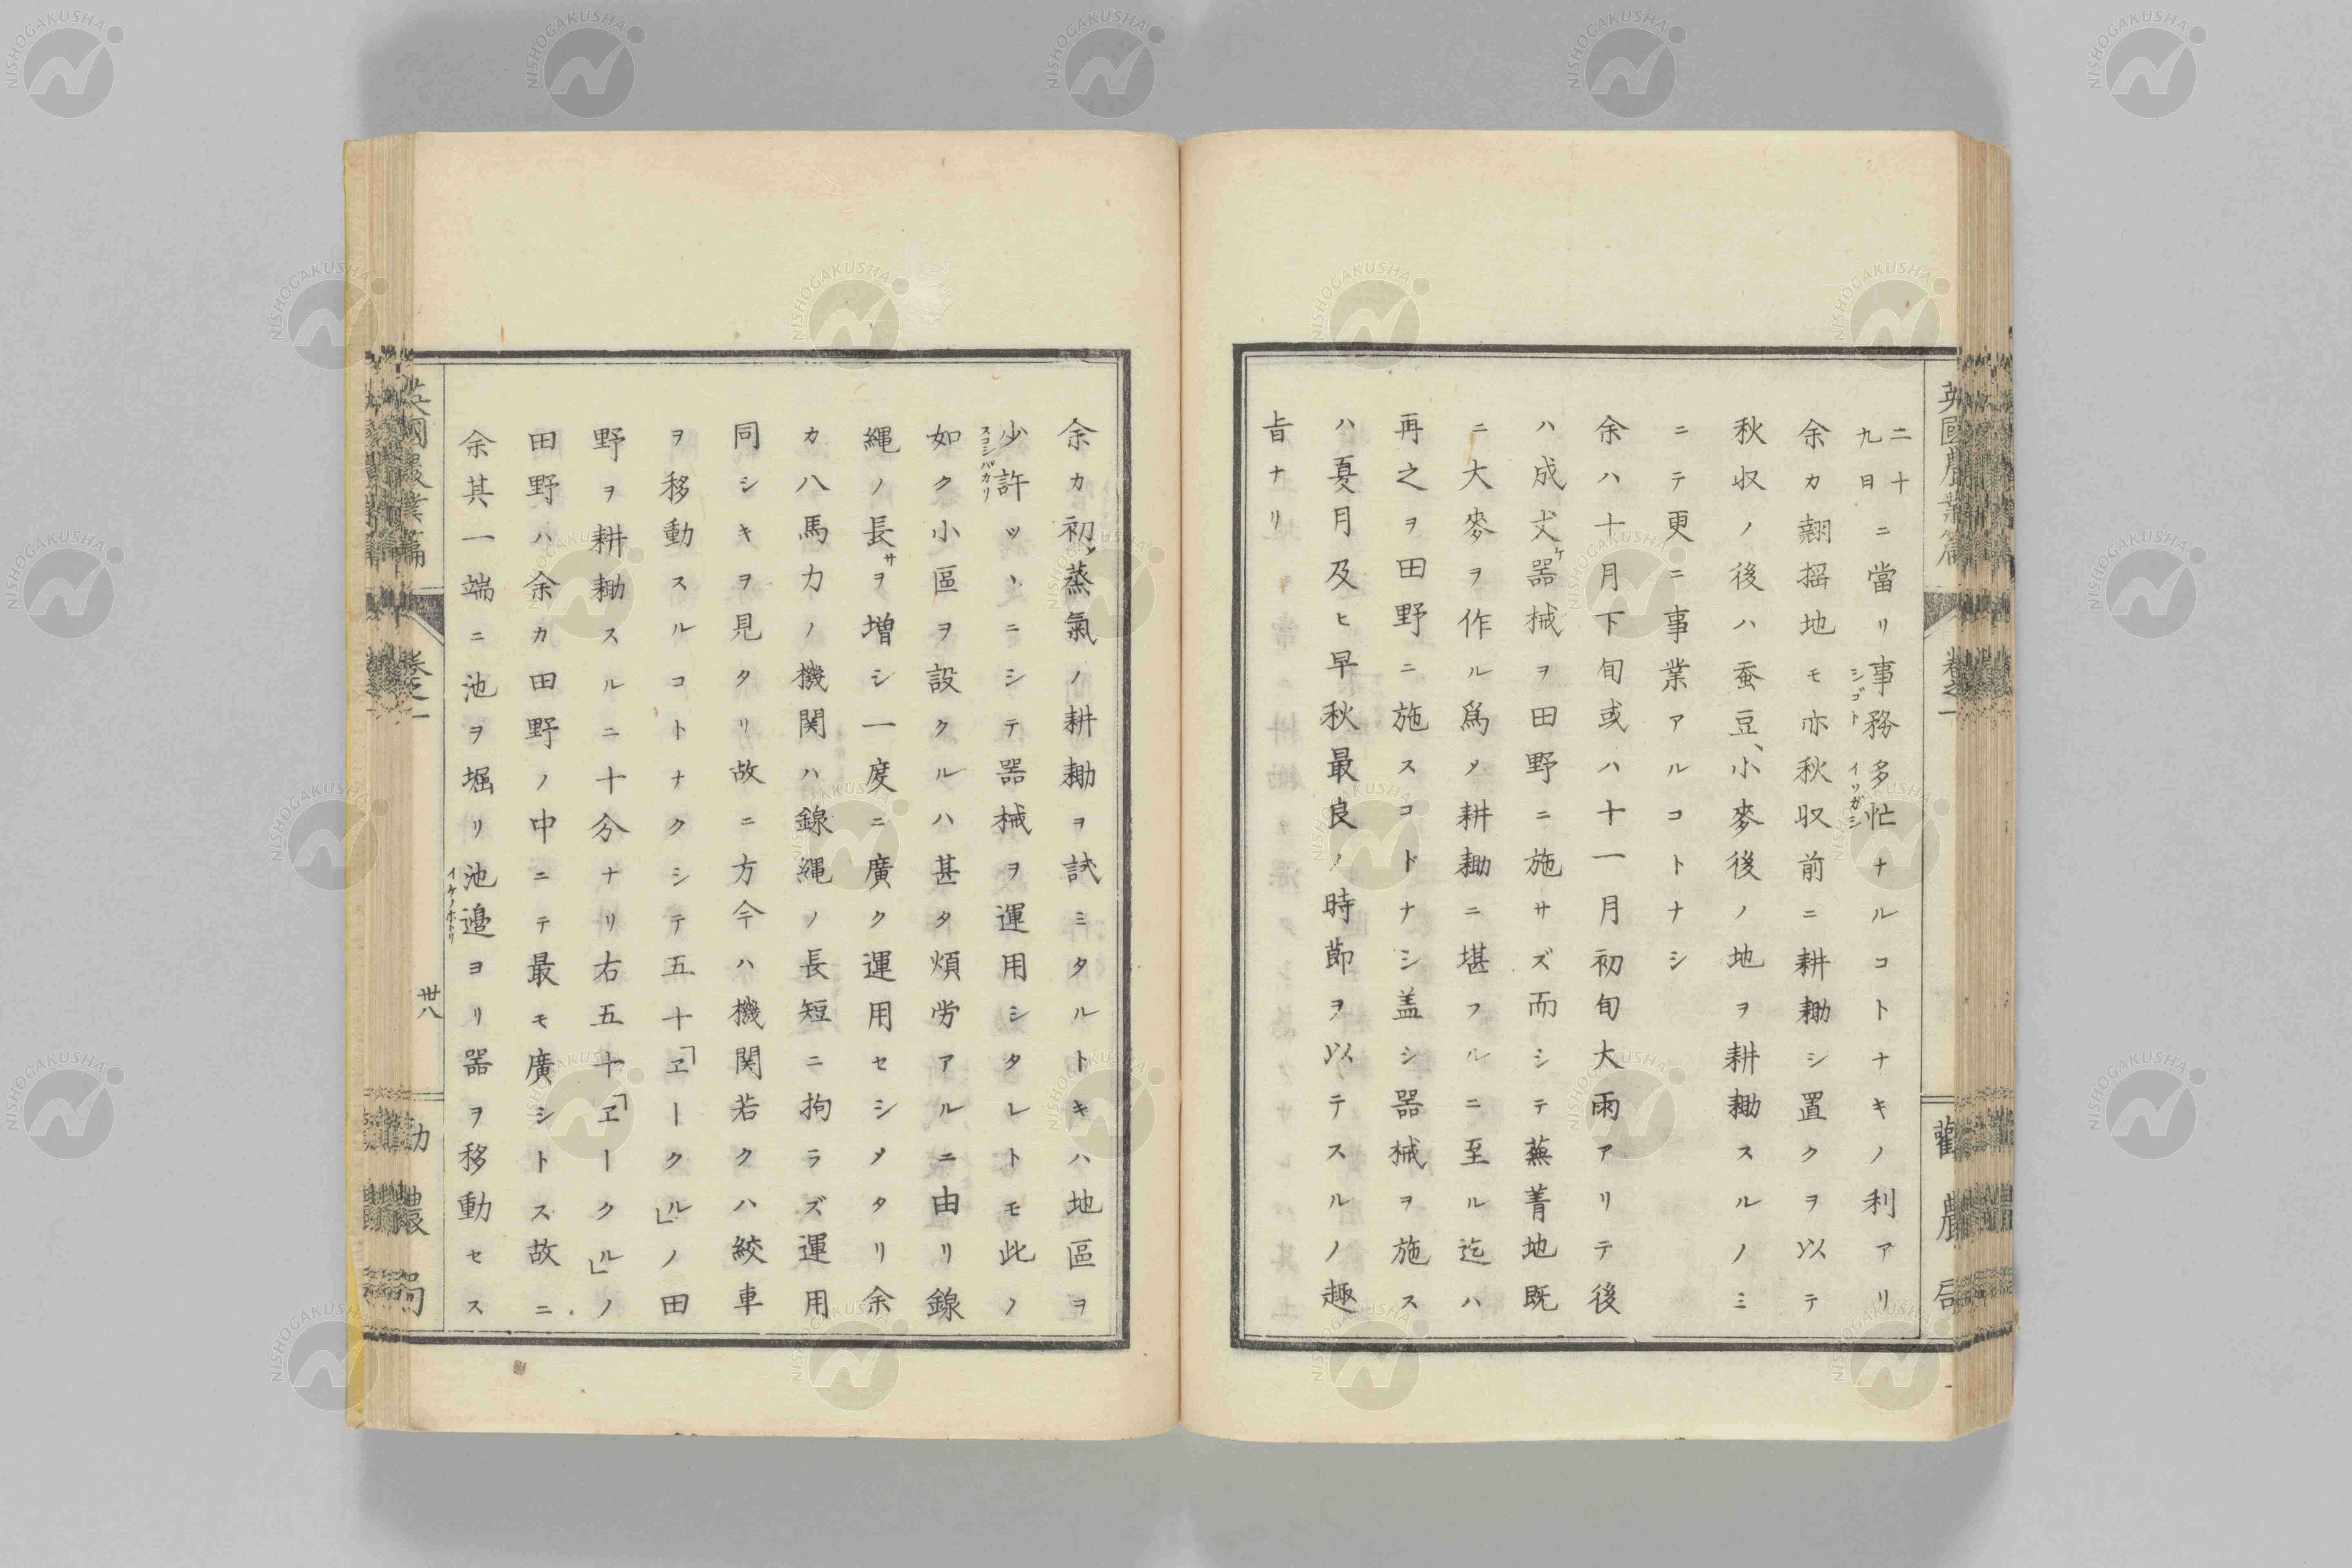 二十
九日ニ當リ事務多忙ナルコトナキノ利アリ
シゴト イソガシ
余カ翻揺地モ亦秋収前ニ耕耡シ置クヲ以テ
秋収ノ後ハ蚕豆、小麥後ノ地ヲ耕耡スルノミ
ニテ更ニ事業アルコトナシ
余ハ十月下旬或ハ十一月初旬大雨アリテ後
ハ成丈ケ器械ヲ田野ニ施サズ而シテ蕪菁地既
ニ大麥ヲ作ル爲メ耕耡ニ堪フルニ至ル迄ハ
再之ヲ田野ニ施スコトナシ盖シ器械ヲ施ス
ハ夏月及ヒ早秋最良ノ時節ヲ以テスルノ趣
旨ナリ
英國農業篇 卷之一 勸農局
余カ初メ蒸氣ノ耕耡ヲ試ミタルトキハ地區ヲ
少許ツヽニシテ器械ヲ運用シタレトモ此ノ
スコシバカリ
如ク小區ヲ設クルハ甚タ煩労アルニ由リ線
縄ノ長サヲ増シ一度ニ廣ク運用セシメタリ余
カ八馬力ノ機関ハ線縄ノ長短ニ拘ラズ運用
同シキヲ見タリ故ニ方今ハ機関若クハ絞車
ヲ移動スルコトナクシテ五十「ヱークル」ノ田
野ヲ耕耡スルニ十分ナリ右五十「ヱークル」ノ
田野ハ余カ田野ノ中ニテ最モ廣シトス故ニ
余其一端ニ池ヲ堀リ池邉ヨリ器ヲ移動セス
イケノホトリ
英國農業篇 卷之一 卅八 勸農局
NISHOGAKUSHA